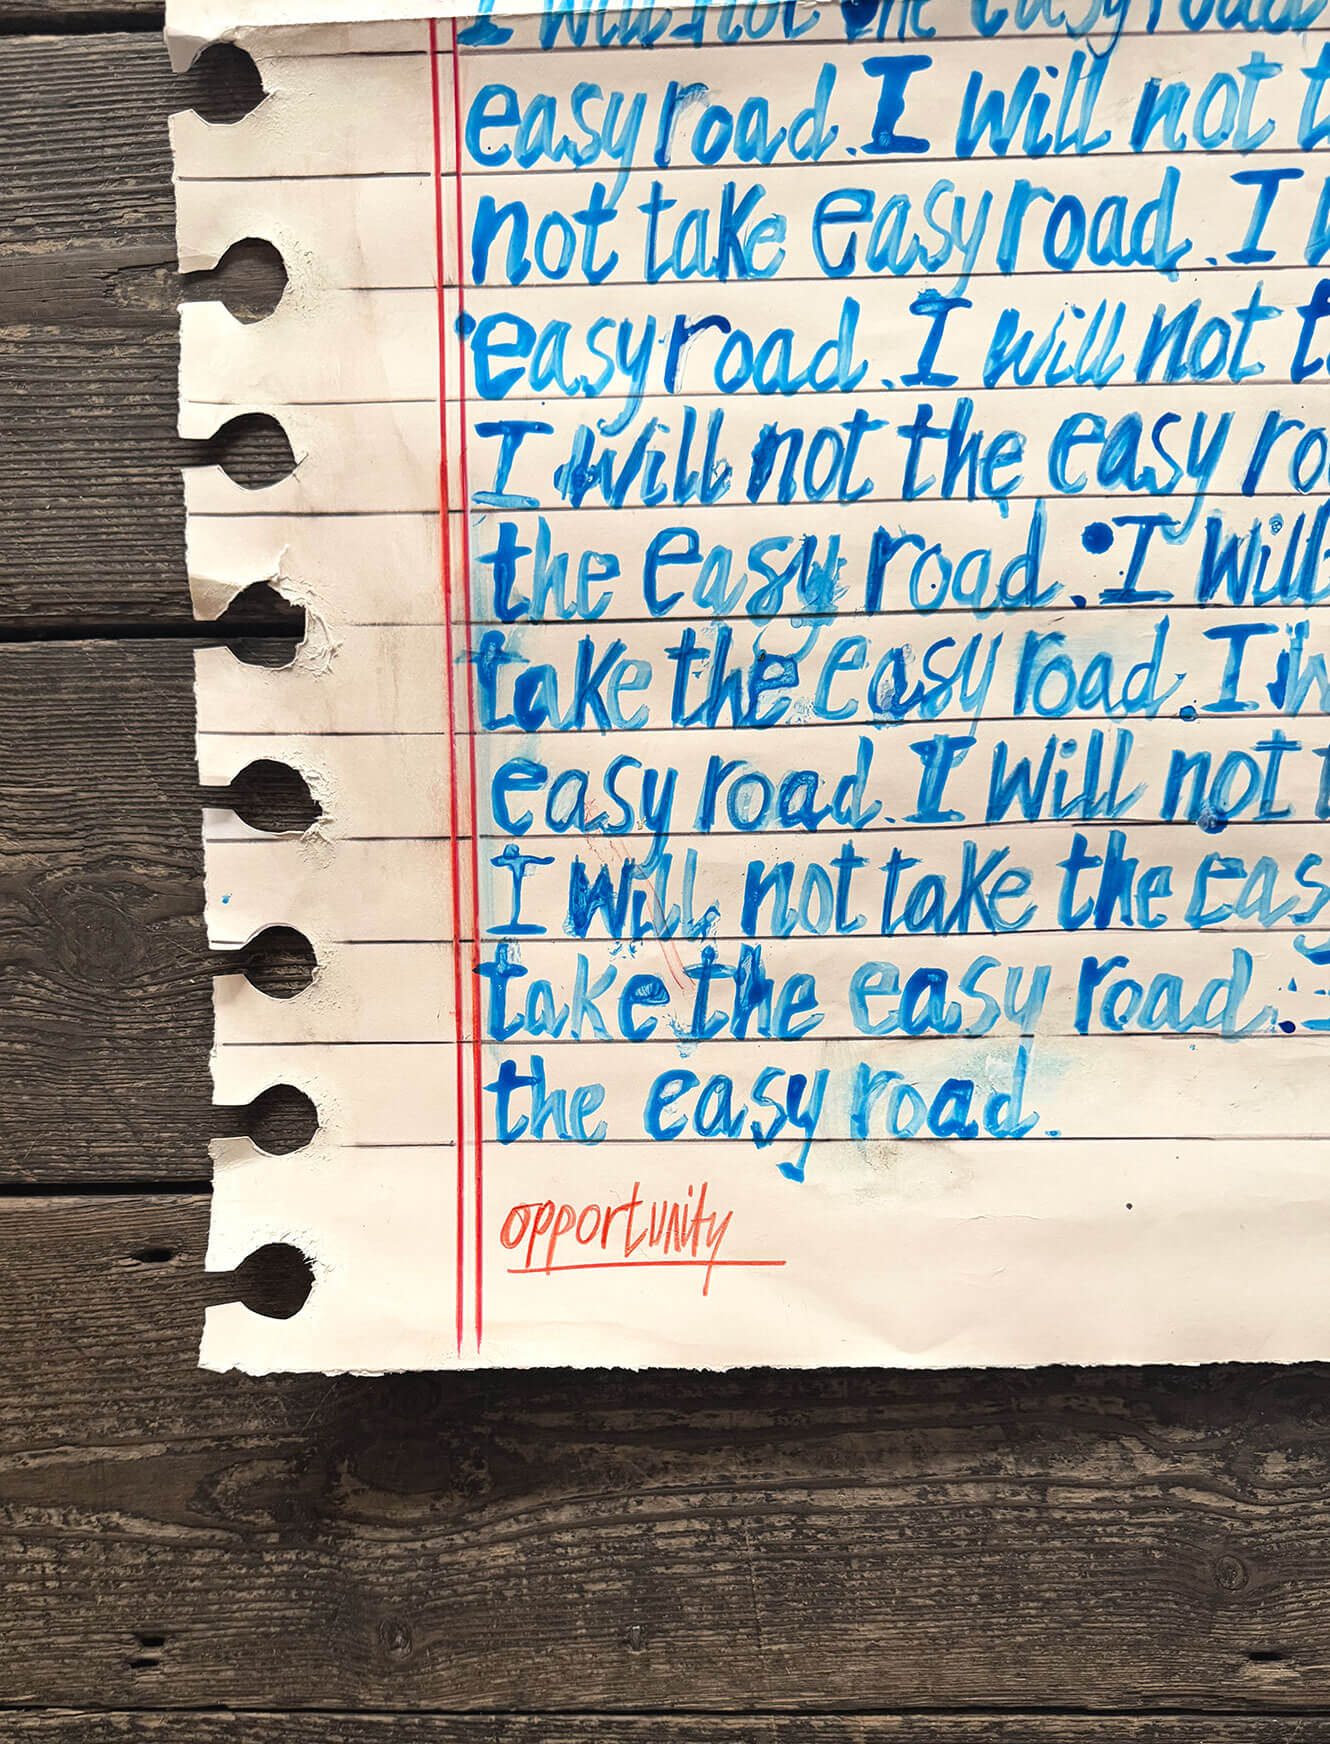 I will not the easy road
easy road. I will not t
not take easy road. I w
easy road. I will not t
I will not the easy ro
the easy road. I will
take the easy road. I w
easy road. I will not t
I will not take the eas
take the easy road. I
the easy road.
opportunity